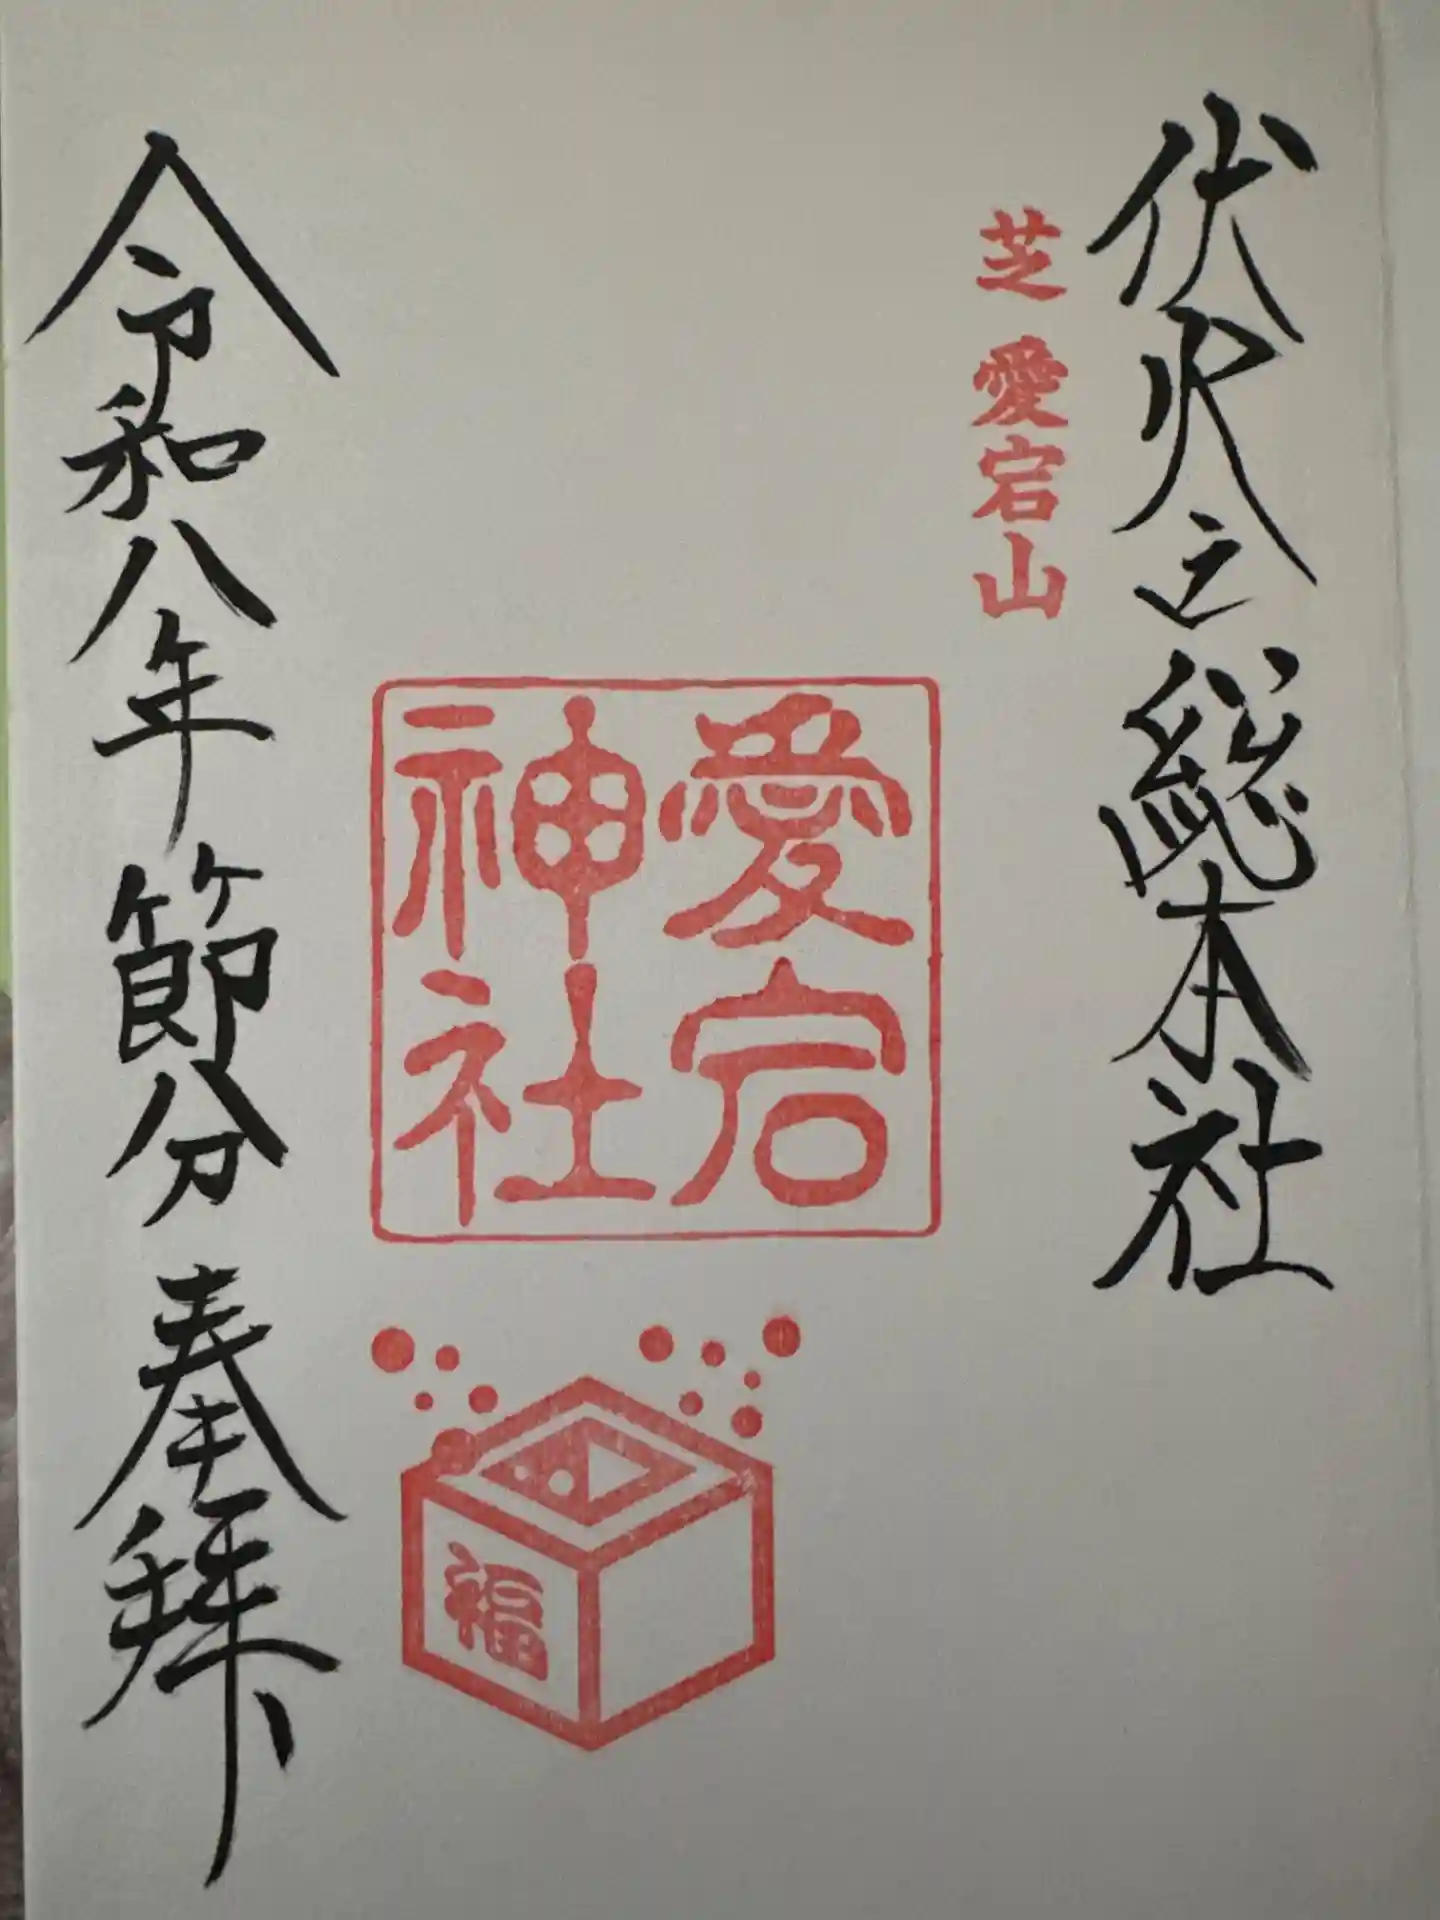 伏火之総本社
芝 愛宕山
愛宕
神社
福
令和八年節分奉拝